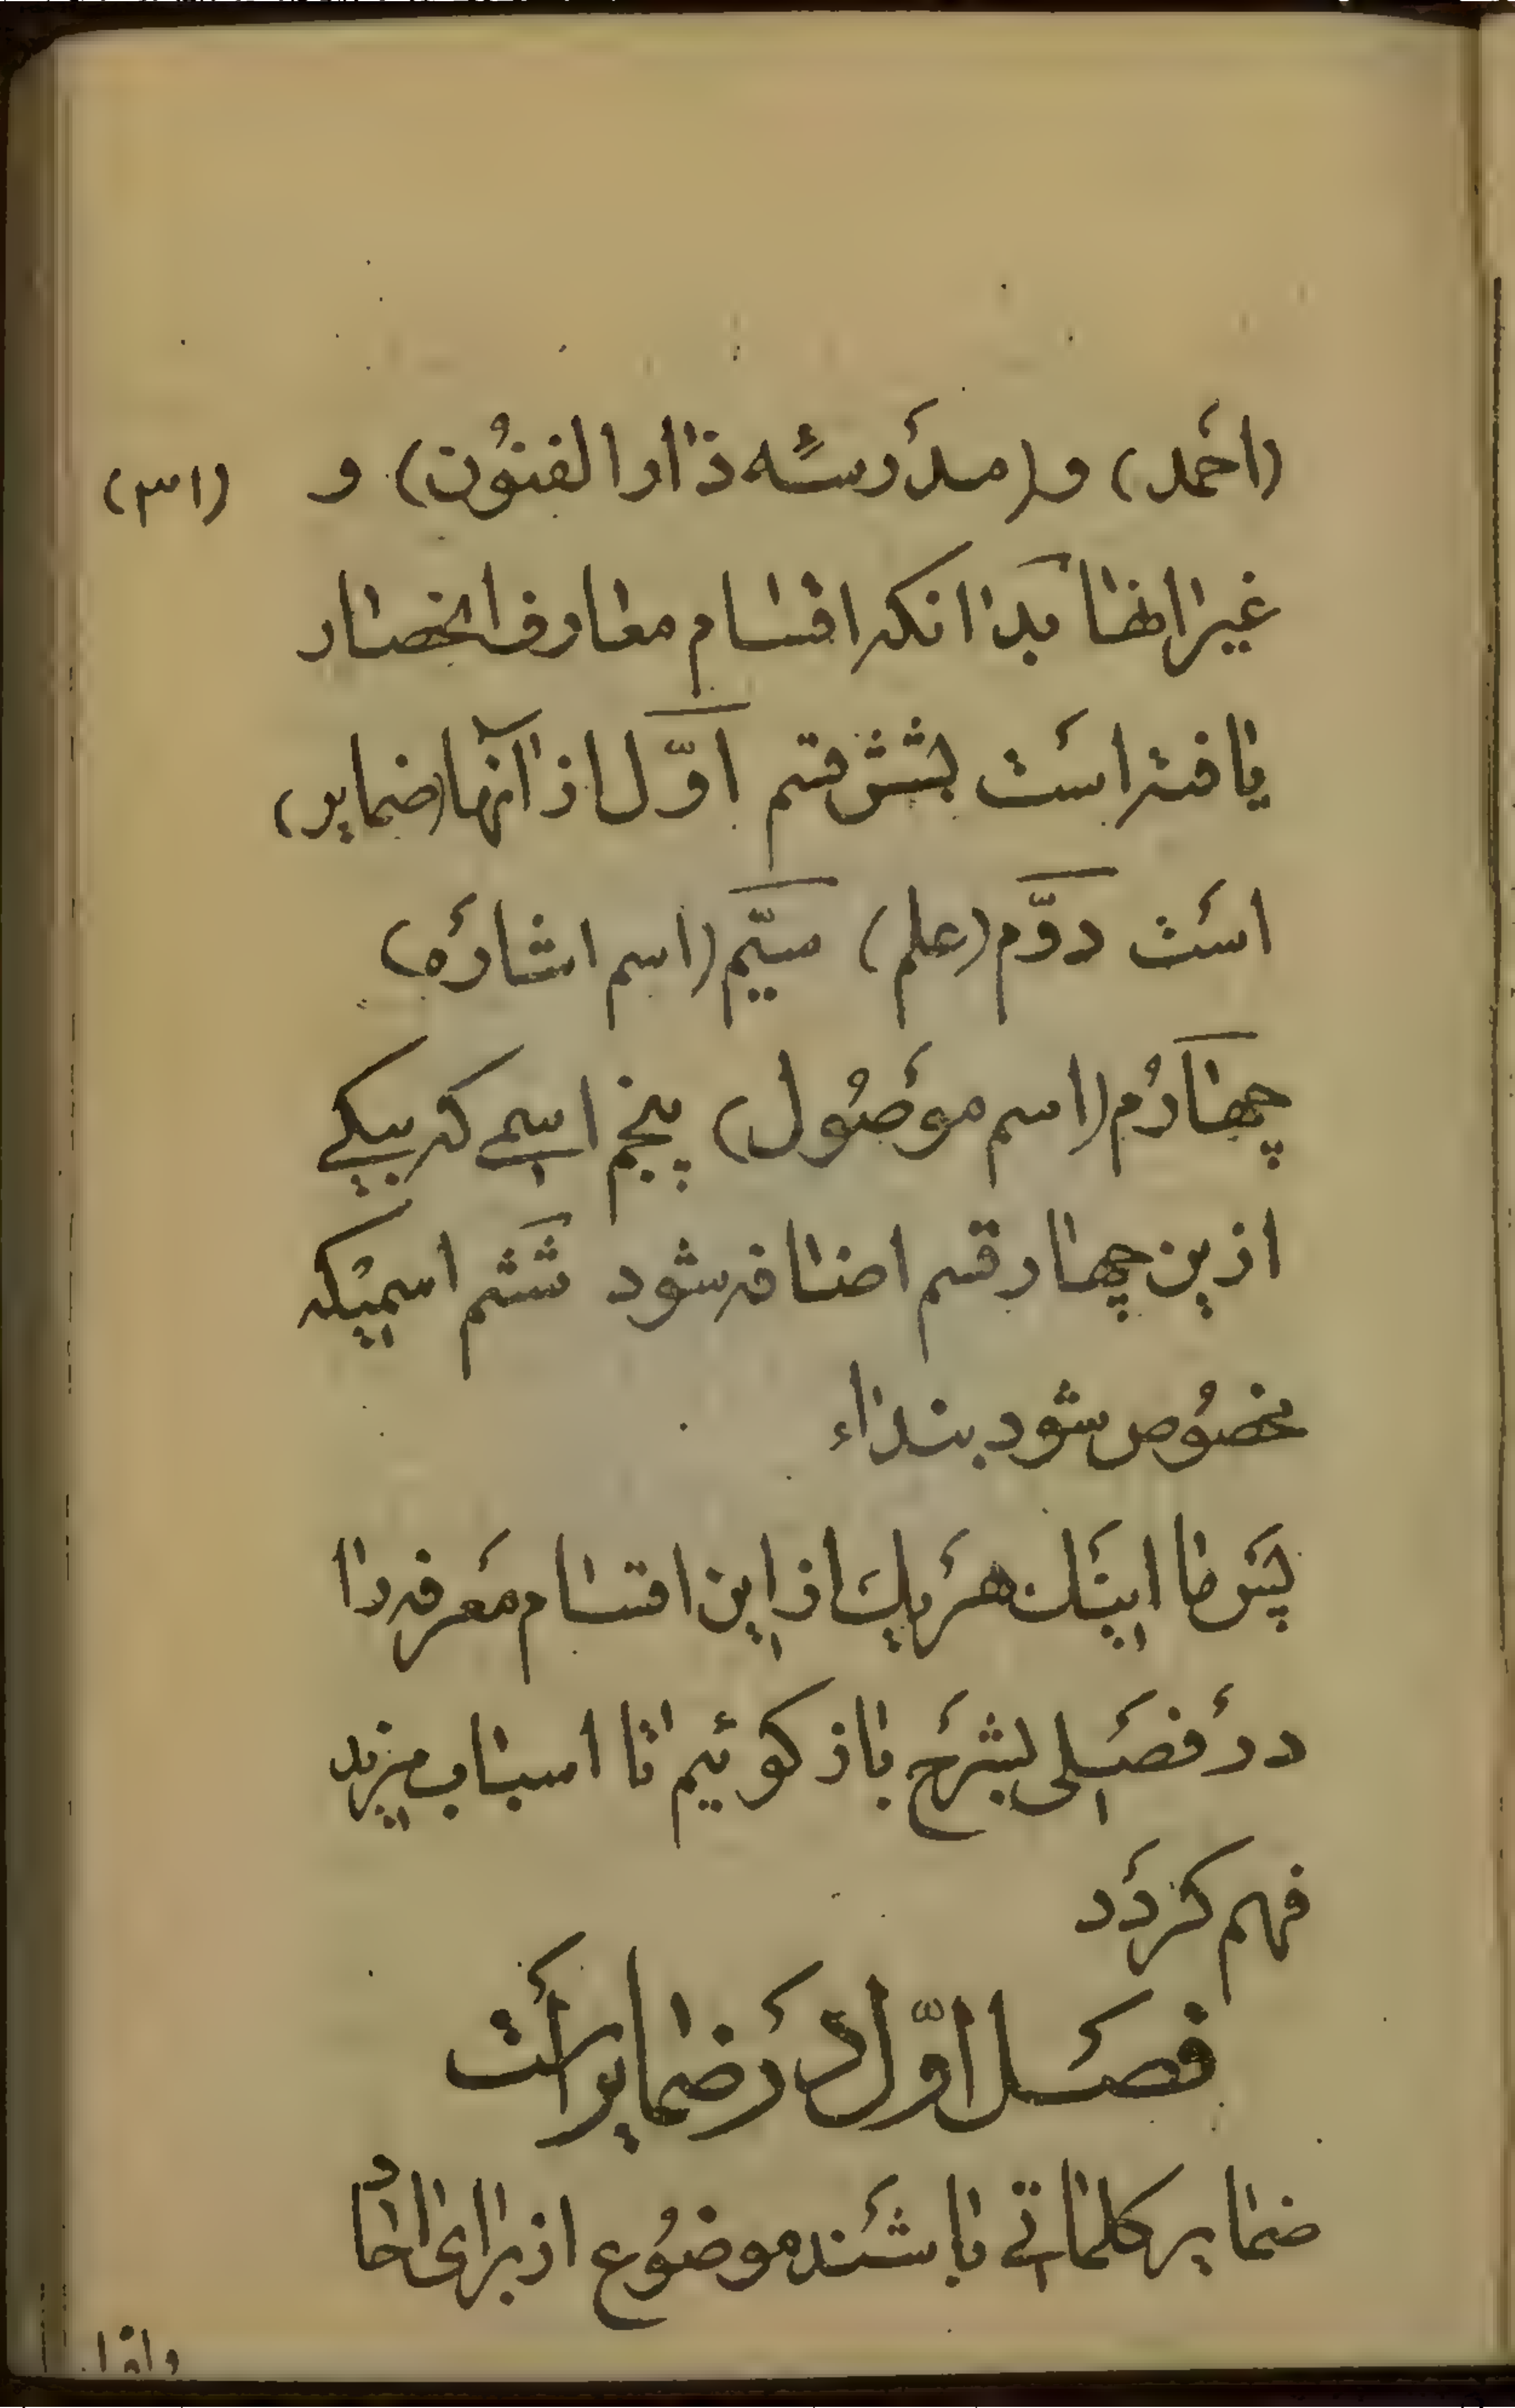 (احمَد) و (مدرَسَهٔ دارالفنُون) و (۳۱)
غیر انها بدانکه اقسام معارف انحصار
یافته است بشش قسم اوّل از آنها (ضمایر)
است دوّم (علم) سیّم (اسم اشارَه)
چهارُم (اسم موصُول) پنجم اسمی که بیکی
ازین چهار قسم اضافه شود ششم اسمیکه
مخصُوص شود بنداء
پس ما اینَک هَر یک از این اقسام مَعرفه را
در فصَلی بشرَح باز کوئیم تا اسباب مزید
فهم کَردَد
فصَل اوّل دَر ضمایر است
ضمایر کلماتی باشَند موضُوع از برای احاد
وافرا